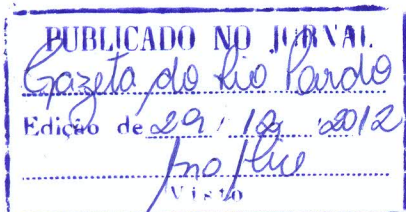 PUBLICADO NO JORNAL
Gazeta do Rio Pardo
Edição de 29 / 12 / 2012
Visto